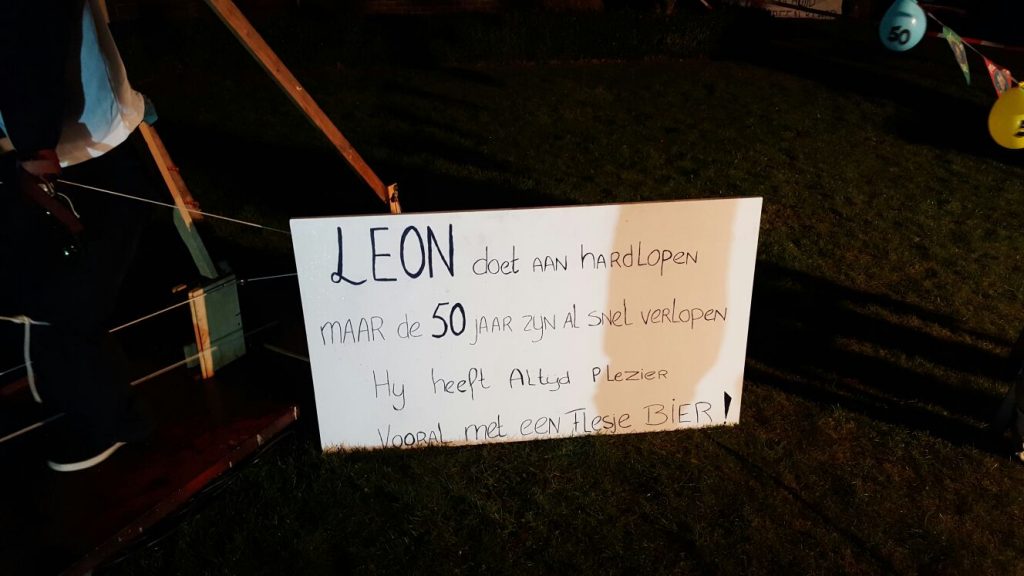 50
LEON doet AAN hARdLOPEN
MAAR de 50 JAAR ZyN AL SNEL VERLOPEN
Hy heeft ALtyd PLEZIER
VOORAL met EEN FLESJE BIER!